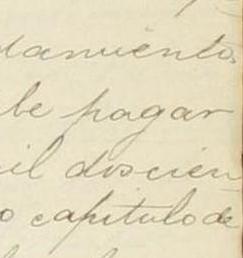 damiento,
be pagar
il doscien
o capitulo de